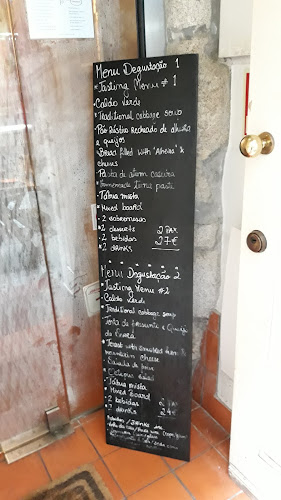 Menu Degustação 1
* Tasting Menu #1
• Caldo Verde
* Traditional cabbage soup
Pão Rústico recheado de alheira
e queijos
Bread filled with "Alheira" &
cheeses
Pasta de atum caseira
* Homemade tuna paste
• Tábua mista
* Mixed board
• 2 sobremesas
* 2 desserts 2 PAX
• 2 bebidas 27€
* 2 drinks
Menu Degustação 2
* Tasting Menu #2
• Caldo verde
* Traditional cabbage soup
Tosta de presunto e Queijo
da
* Toast with smoked ham &
mountain cheese
• Salada de
• Tábua mista
* Mixed Board
• 2 bebidas 2 PAX
* 2 drinks 24€
/ Drinks